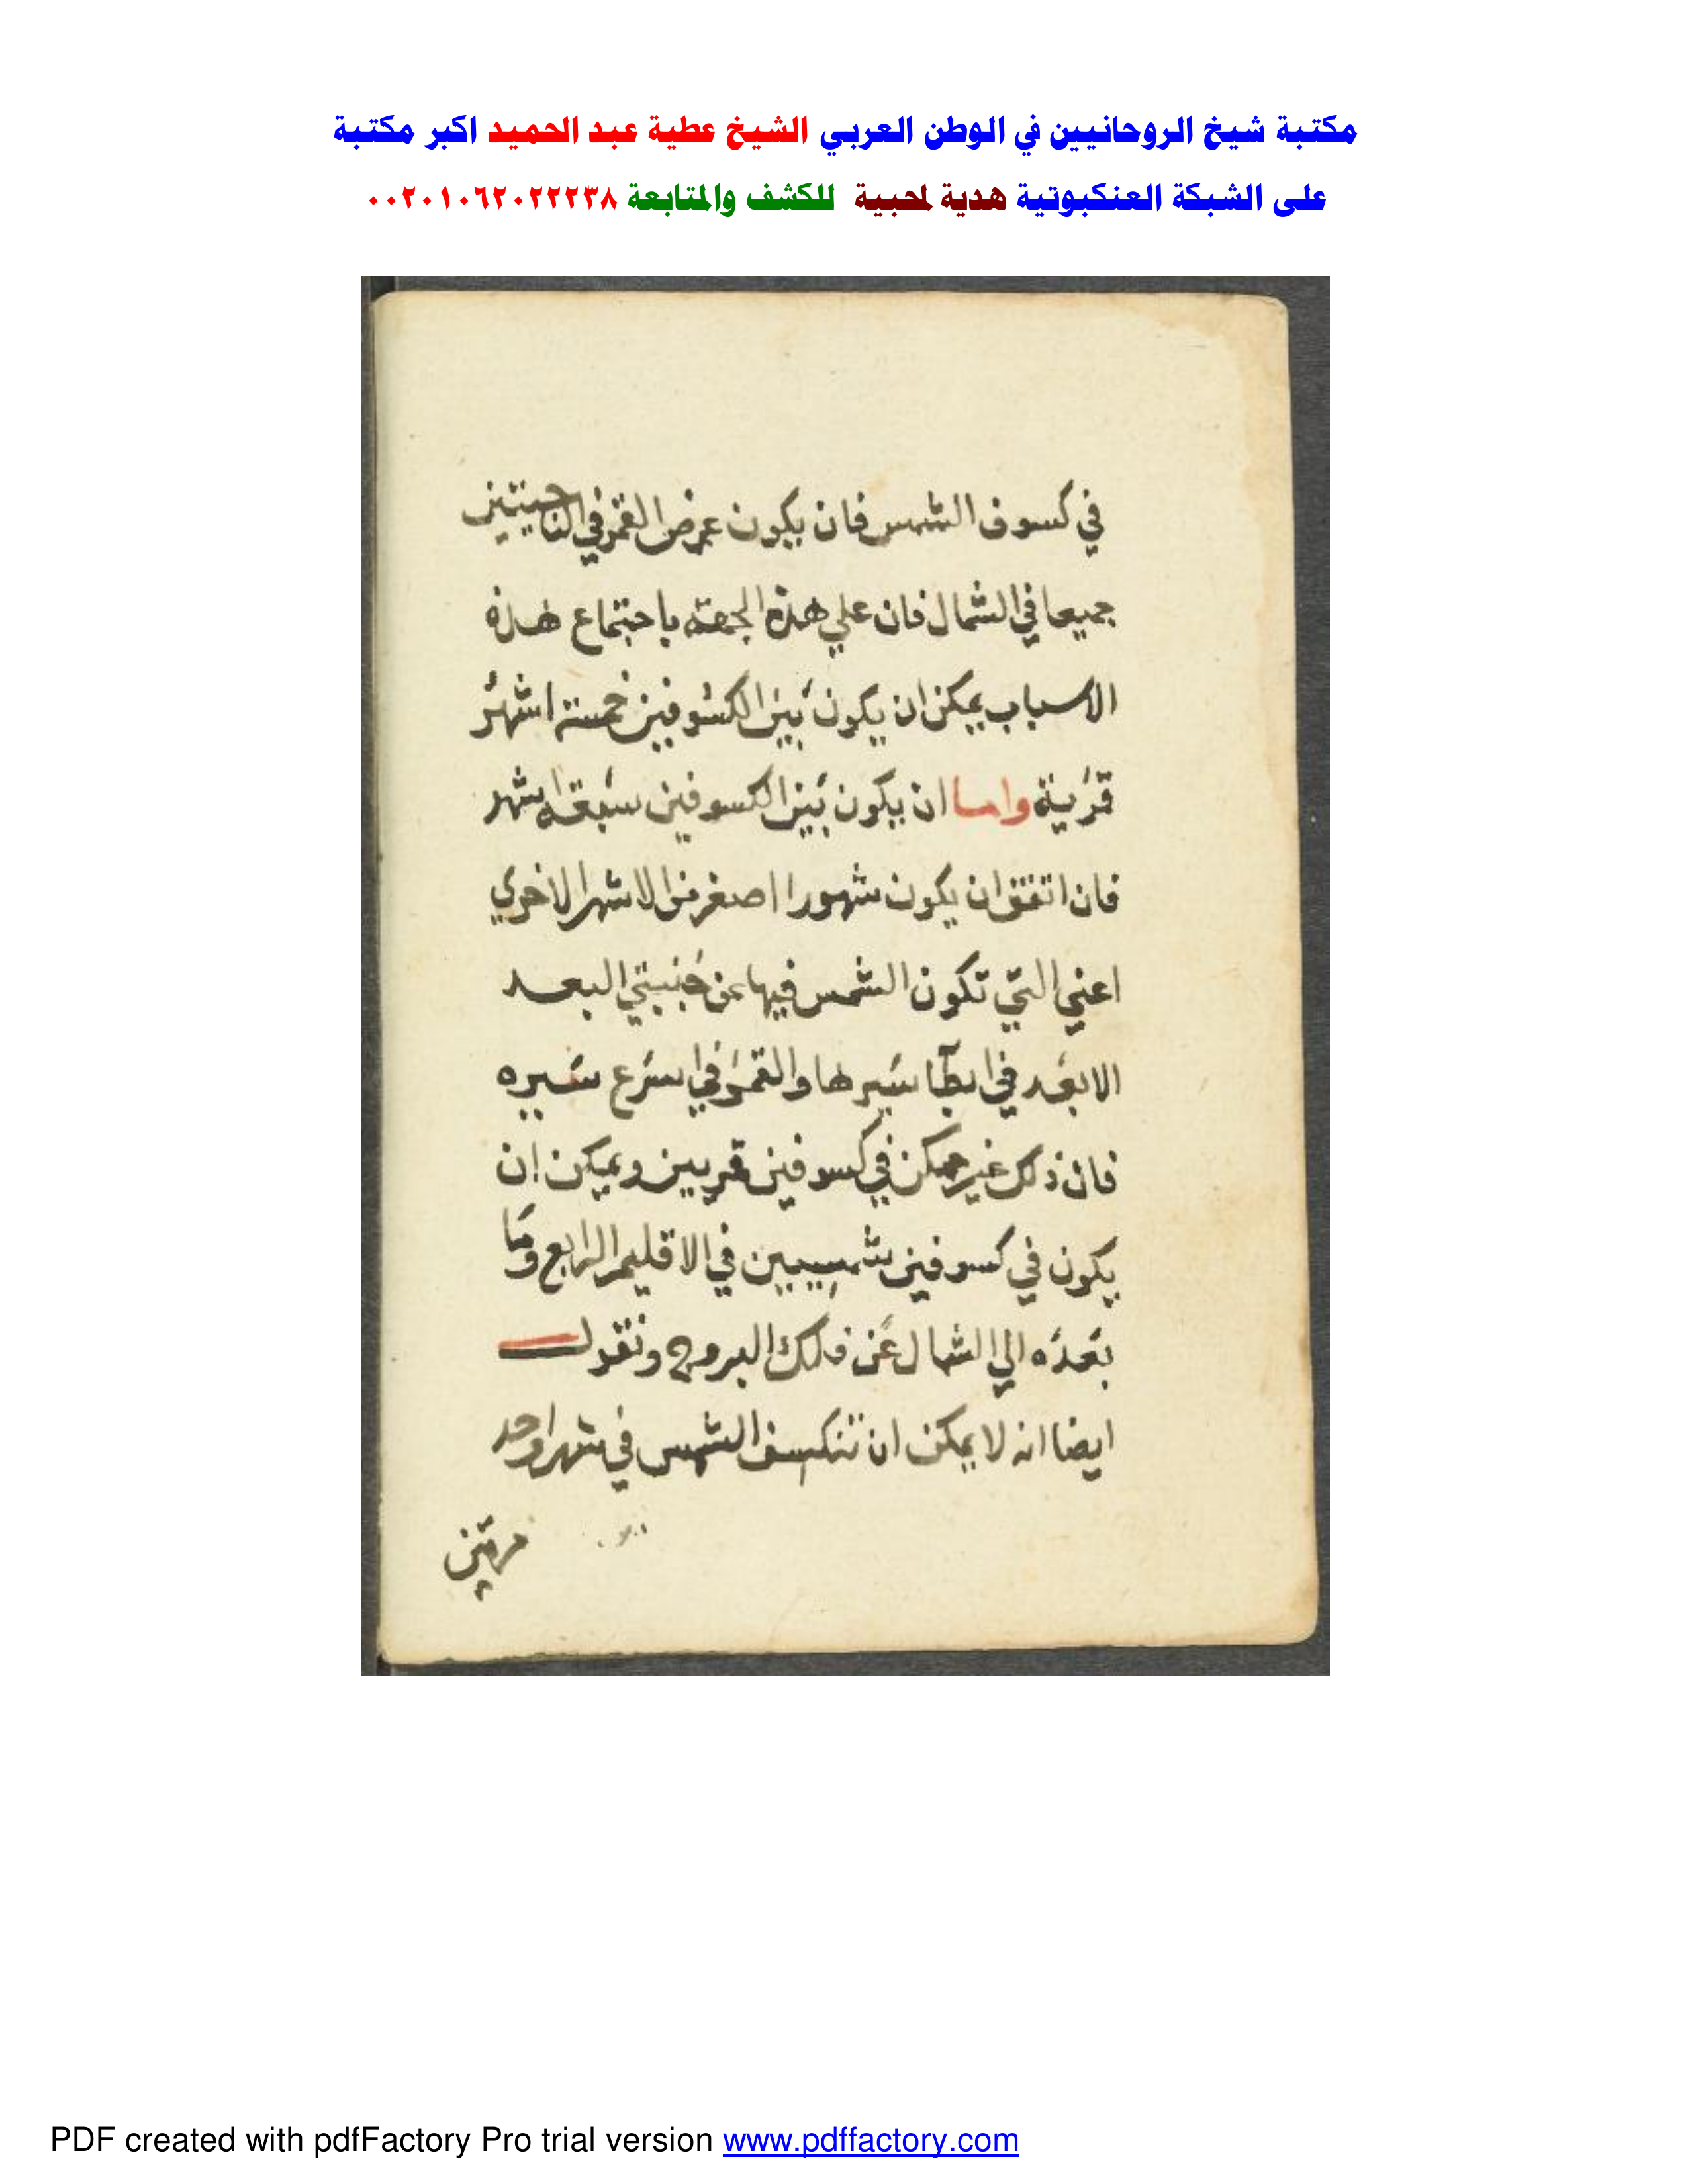 مكتبة شيخ الروحانيين في الوطن العربي الشيخ عطية عبد الحميد اكبر مكتبة
على الشبكة العنكبوتية هدية لمحبية للكشف والمتابعة ٠٠٢٠١٠٦٢٠٢٢٢٣٨
في كسوف الشمس فان يكون عرض القمر في الناحيتين
جميعا في الشمال فان علي هذه الجهة باجتماع هذه
الاسباب يمكن ان يكون بَين الكسوفين خمسة اشهُر
قَرَيبة واما ان يكون بَين الكسوفين سَبعَة اشهر
فان اتفق ان يكون شهورا اصغر من الاشهر الاخري
اعني التي تكون الشمس فيها عن جَنبتي البعد
الابعَد في ابطآ سَيرها والقمَر في اسَرع سَيره
فان ذلك غير ممكن في كسوفين قمريين ويمكن ان
يكون في كسوفين شمسيين في الاقليم الرابع وَما
بَعدَه الي الشمال عَن فلك البروج ونقول
ايضا انه لا يمكن ان تنكسف الشمس في شهر واحد
مرتين
PDF created with pdfFactory Pro trial version www.pdffactory.com